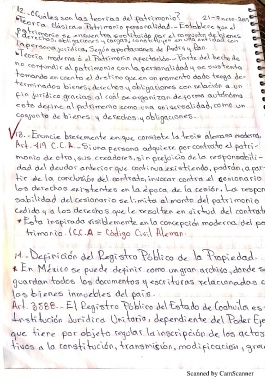 12.- ¿Cuáles son las teorías del patrimonio? 21-Enero-
• Teoría clásica o Patrimonio personalidad.- Establece que el
Patrimonio se encuentra constituido por el conjunto de bienes
obligaciones y cargas, constituyen una entidad con
la persona jurídica, Según aportaciones de Aubry y Rau
• Teoría moderna o el Patrimonio afectación.- Parte del hecho de
no confundir al patrimonio con la personalidad y se sustenta
tomando en cuenta el destino que en un momento dado tenga de-
terminados bienes, derechos y obligaciones con relación a un
fin jurídico gracias al cual se organizan de forma autónoma
esto define al patrimonio como una universalidad, como un
conjunto de bienes y derechos y obligaciones.
13.- Enuncie brevemente en que consiste la tesis alemana moderna.
Art. 419 C.C.A - Si una persona adquiere por contrato el patri-
monio de otra, sus creadores, sin prejuicio de la responsabili-
dad del deudor anterior que continua existiendo, podrán, a par-
tir de la conclusión del contrato, invocar contra el cesionario
los derechos existentes en la época de la cesión. La respon
sabilidad del cesionario se limita al monto del patrimonio
cedido y a los derechos que le resulten en virtud del contrato
* Esta inspirada visiblemente en la concepción moderna del pa
trimonio. (CCA = Código Civil Alemán
14.- Definición del Registro Público de la Propiedad.
* En México se puede definir como un gran archivo, donde s
guardan todos los documentos y escrituras relacionadas c
los bienes inmuebles del país.
Art. 3588.- El Registro Público del Estado de Coahuila es
Institución Jurídica Unitaria, dependiente del Poder Eje
que tiene por objeto regular la inscripción de los actos
tivos a la constitución, transmisión, modificación, gra
Scanned by CamScanner